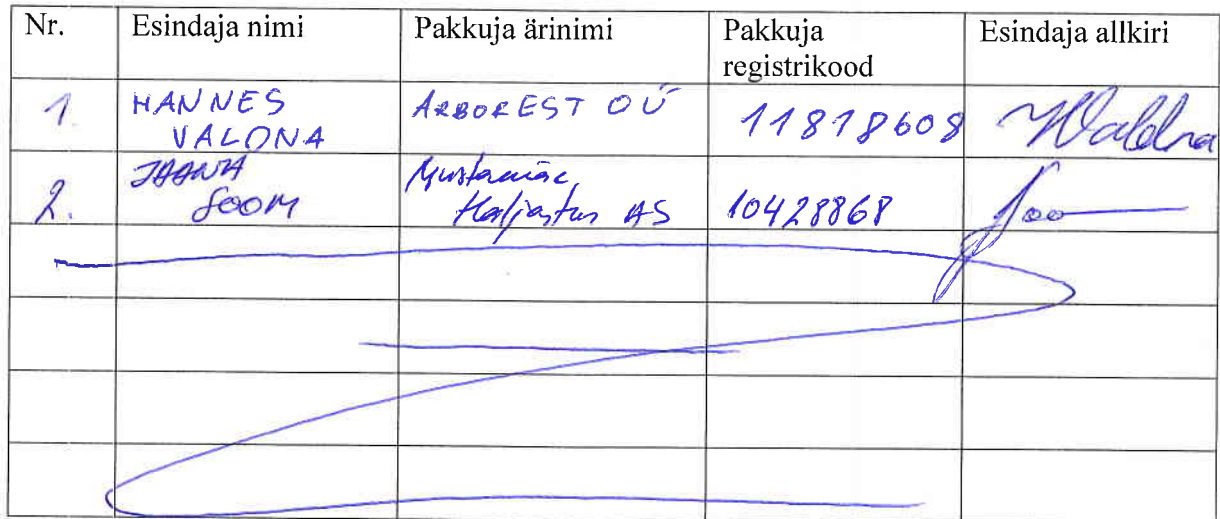 Nr. Esindaja nimi Pakkuja ärinimi Pakkuja registrikood Esindaja allkiri
1. HANNES VALONA ARBOREST OÜ 11818608
2. JAANA SOOM Mustamäe Haljastus AS 10428868